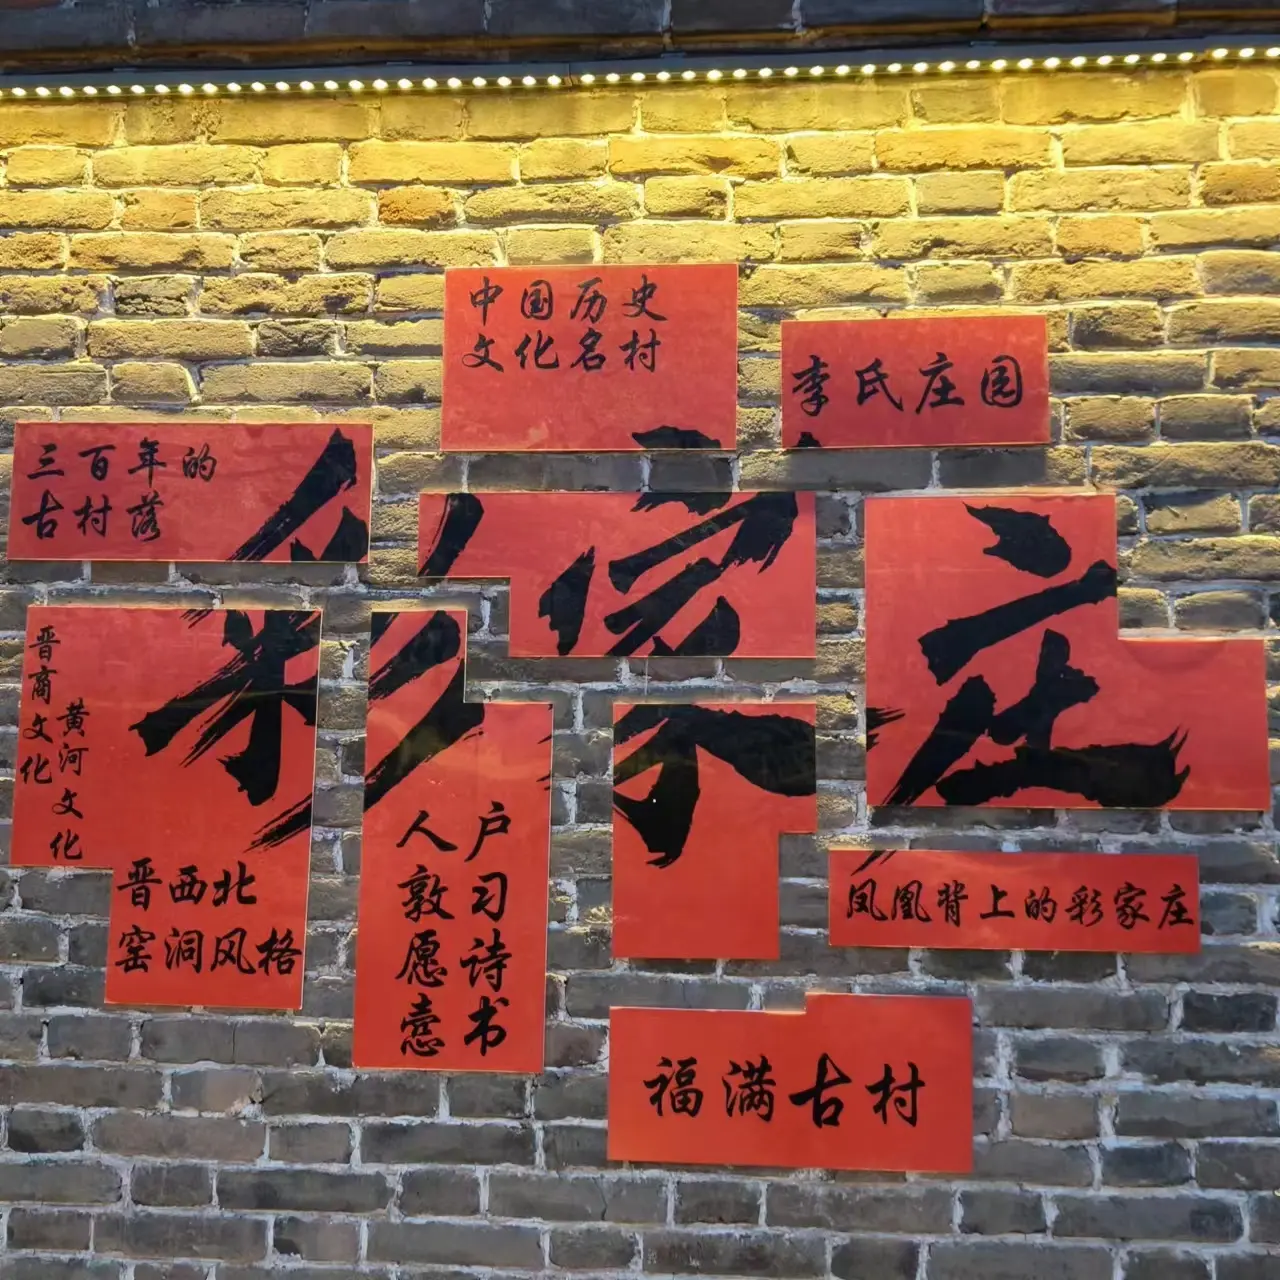 中国历史
文化名村
李氏庄园
三百年的
古村落
彩家庄
晋商文化
黄河文化
晋西北
窑洞风格
户习诗书
人敦愿悫
凤凰背上的彩家庄
福满古村